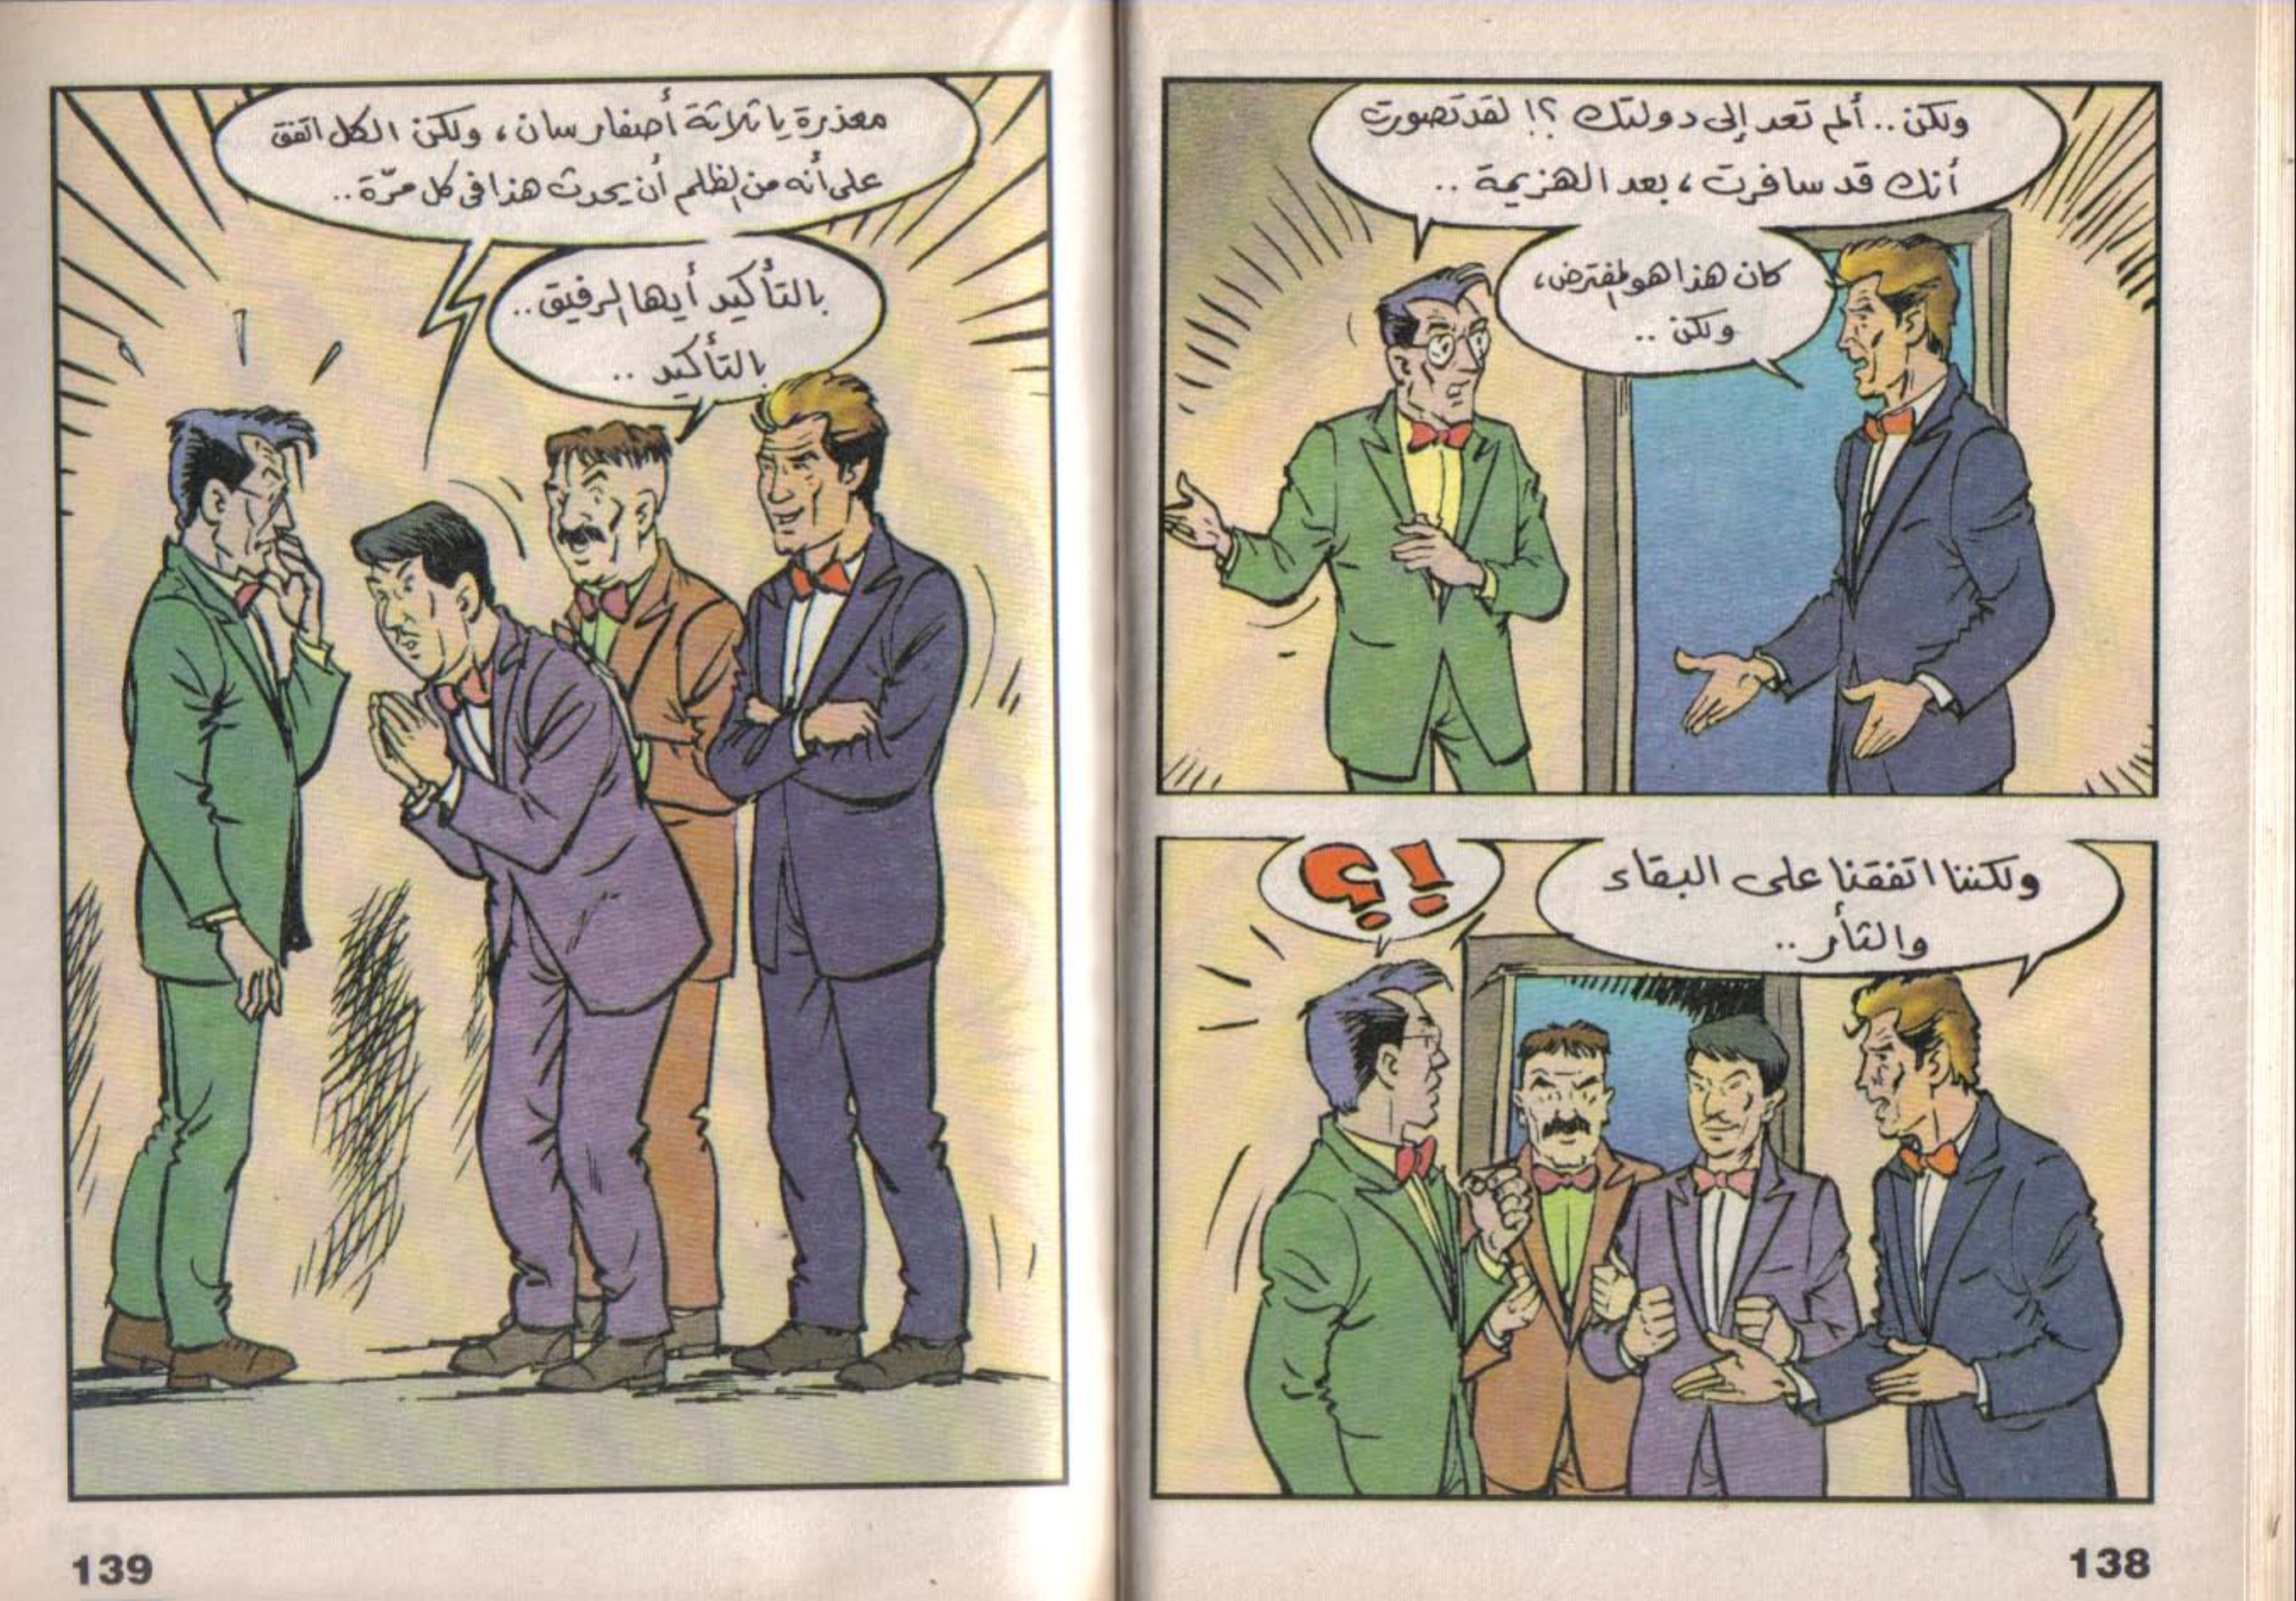 ولكن .. ألم تعد إلى دولتك ؟! لقد تصورت
أنك قد سافرت ، بعد الهزيمة ..
كان هذا هو المفترض ،
ولكن ..
ولكننا اتفقنا على البقاء
والثأر ..
!؟
138
معذرة يا ثلاثة أصفار سان ، ولكن الكل اتفق
على أنه من الظلم أن يحدث هذا فى كل مرّة ..
بالتأكيد أيها الرفيق ..
بالتأكيد ..
139